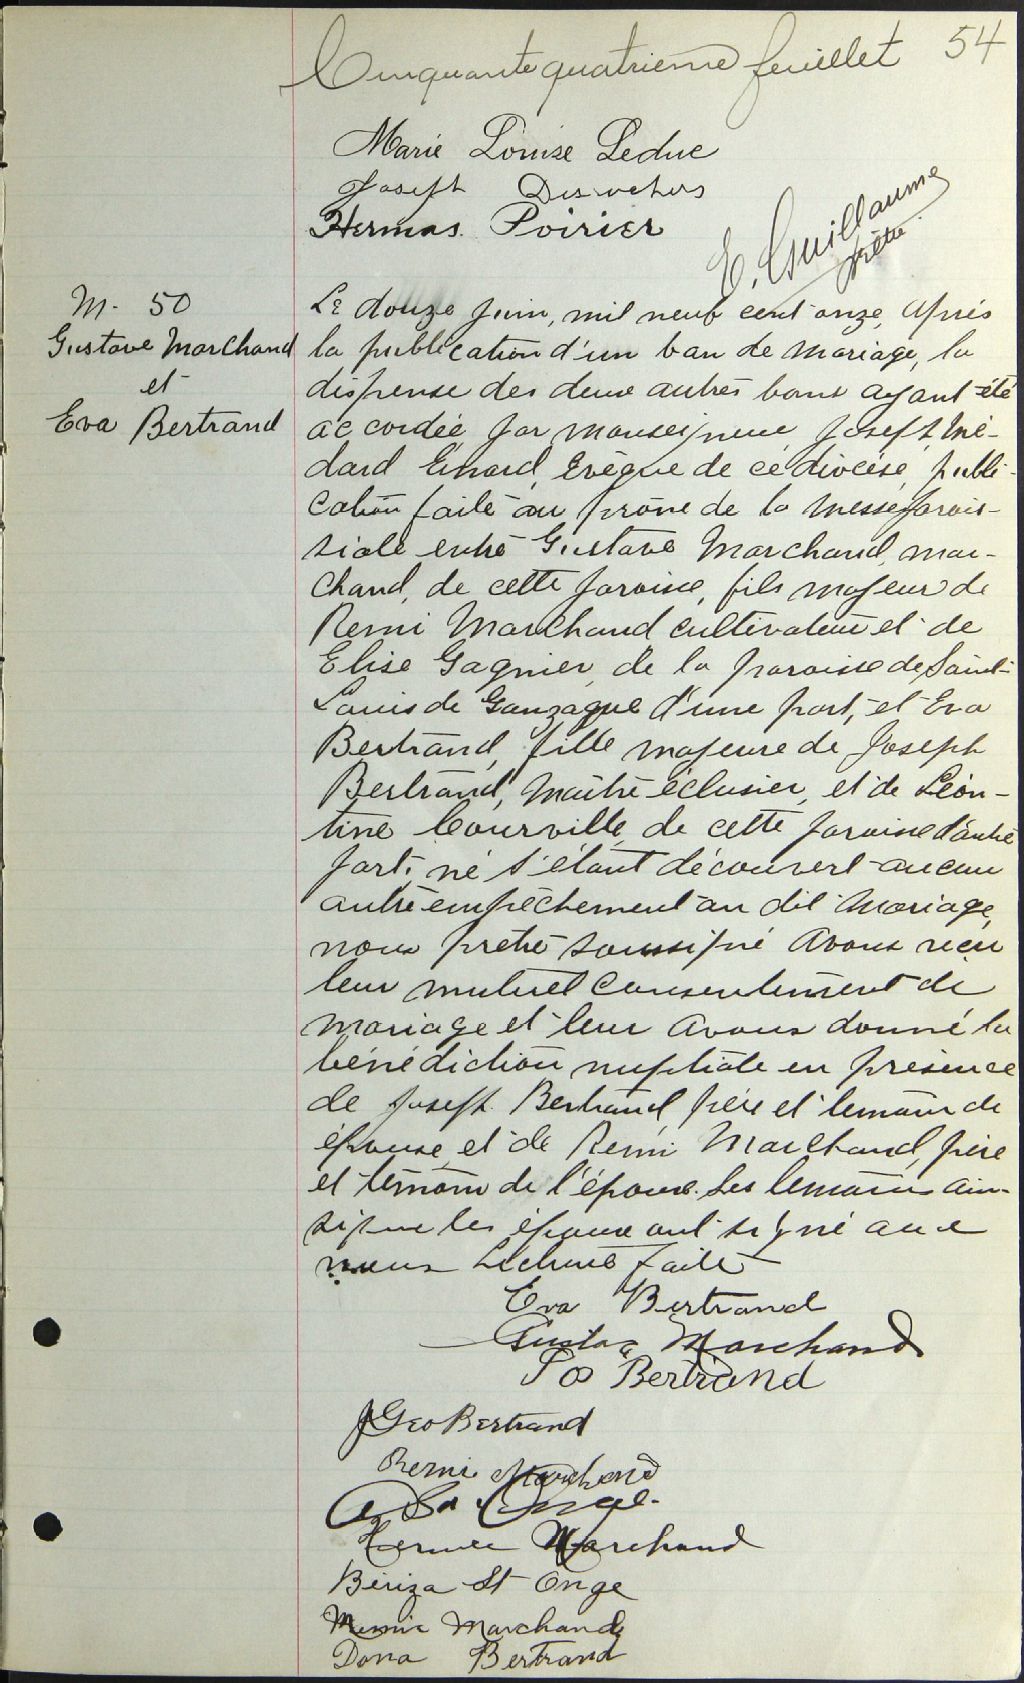 Cinquante quatrième feuillet 54
Marie Louise Leduc
Joseph Desrochers
Hermas Poirier
E. Guillaume
ptre
M. 50
Gustave Marchand
et
Eva Bertrand
Le douze juin, mil neuf cent onze, après
la publication d'un ban de mariage, la
dispense des deux autres bans ayant été
accordée par Monseigneur Joseph Mé-
dard Emard, Evêque de ce diocèse, publi-
cation faite au prône de la Messe parois-
siale entre Gustave Marchand, mar-
chand, de cette paroisse, fils majeur de
Remi Marchand cultivateur et de
Elise Gagnier, de la paroisse de Saint-
Louis de Gonzague d'une part, et Eva
Bertrand, fille majeure de Joseph
Bertrand, maître éclusier, et de Léon-
tine Courville, de cette paroisse d'autre
part, ne s'étant découvert aucun
autre empêchement au dit Mariage,
nous prêtre soussigné avons reçu
leur mutuel consentement de
mariage et leur avons donné la
bénédiction nuptiale en présence
de Joseph Bertrand, père et témoin de
épouse et de Remi Marchand, père
et témoin de l'époux. Les témoins ain-
si que les époux ont signé avec
nous Lecture faite
Eva Bertrand
Gustave Marchand
Jos Bertrand
J Geo Bertrand
Remi Marchand
St Onge
Marchand
Bériza St Onge
Marchand
Dona Bertrand